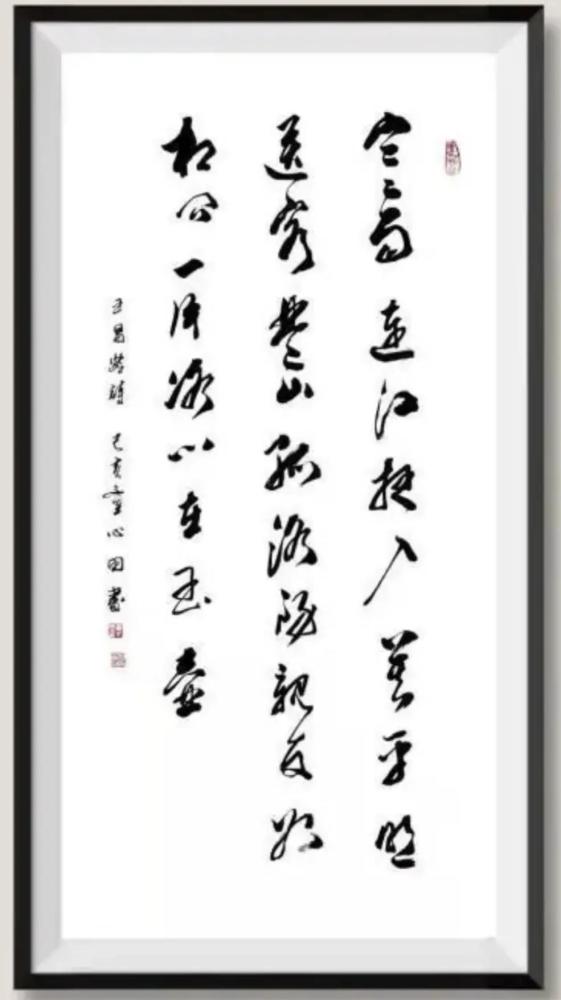 寒雨連江夜入吳平明
送客楚山孤洛陽親友如
相問一片冰心在玉壺
王昌齡詩 己亥 心田書